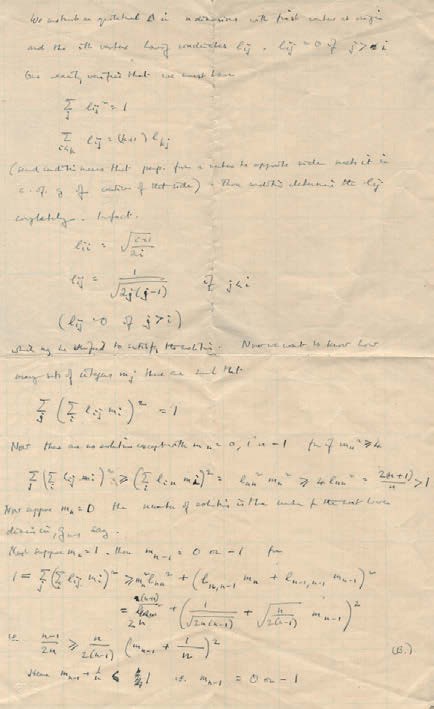 We construct an equilateral Δ in n dimensions with first vertex at origin
and the ith vertex having coordinates lij . lij = 0 if j > i
One easily verifies that we must have
∑j lij² = 1
∑i<k lij = (k+1) lkj
(second condition means that perp. from a vertex to opposite side meets it in
c. of g of vertices of that side) . These conditions determine the lij
completely . In fact .
lii = √(i+1)/2i
lij = 1/√2j(j-1) if j<i
( lij = 0 if j > i )
which may be verified to satisfy the conditions . Now we want to know how
many sets of integers mj there are such that
∑j ( ∑i lij mi )² = 1
Now there are no solutions except with mn = 0, 1 or -1 for if mn² ≥ 4
∑j ( ∑i lij mi )² ≥ ( ∑i lin mi )² = lnn² mn² ≥ 4 lnn² = 2(n+1)/n > 1
Now suppose mn = 0 the number of solutions is the number for the next lower
dimension, say .
Next suppose mn = 1 . then mn-1 = 0 or -1 for
1 = ∑j ( ∑i lij mi )² ≥ mn² lnn² + ( ln,n-1 mn + ln-1,n-1 mn-1 )²
= (n+1)/2n + ( 1/√2n(n-1) + √n/2(n-1) mn-1 )²
i.e. n-1/2n ≥ n/2(n-1) ( mn-1 + 1/n )² (B.)
Hence mn-1 + 1/n < 1 i.e. mn-1 = 0 or -1